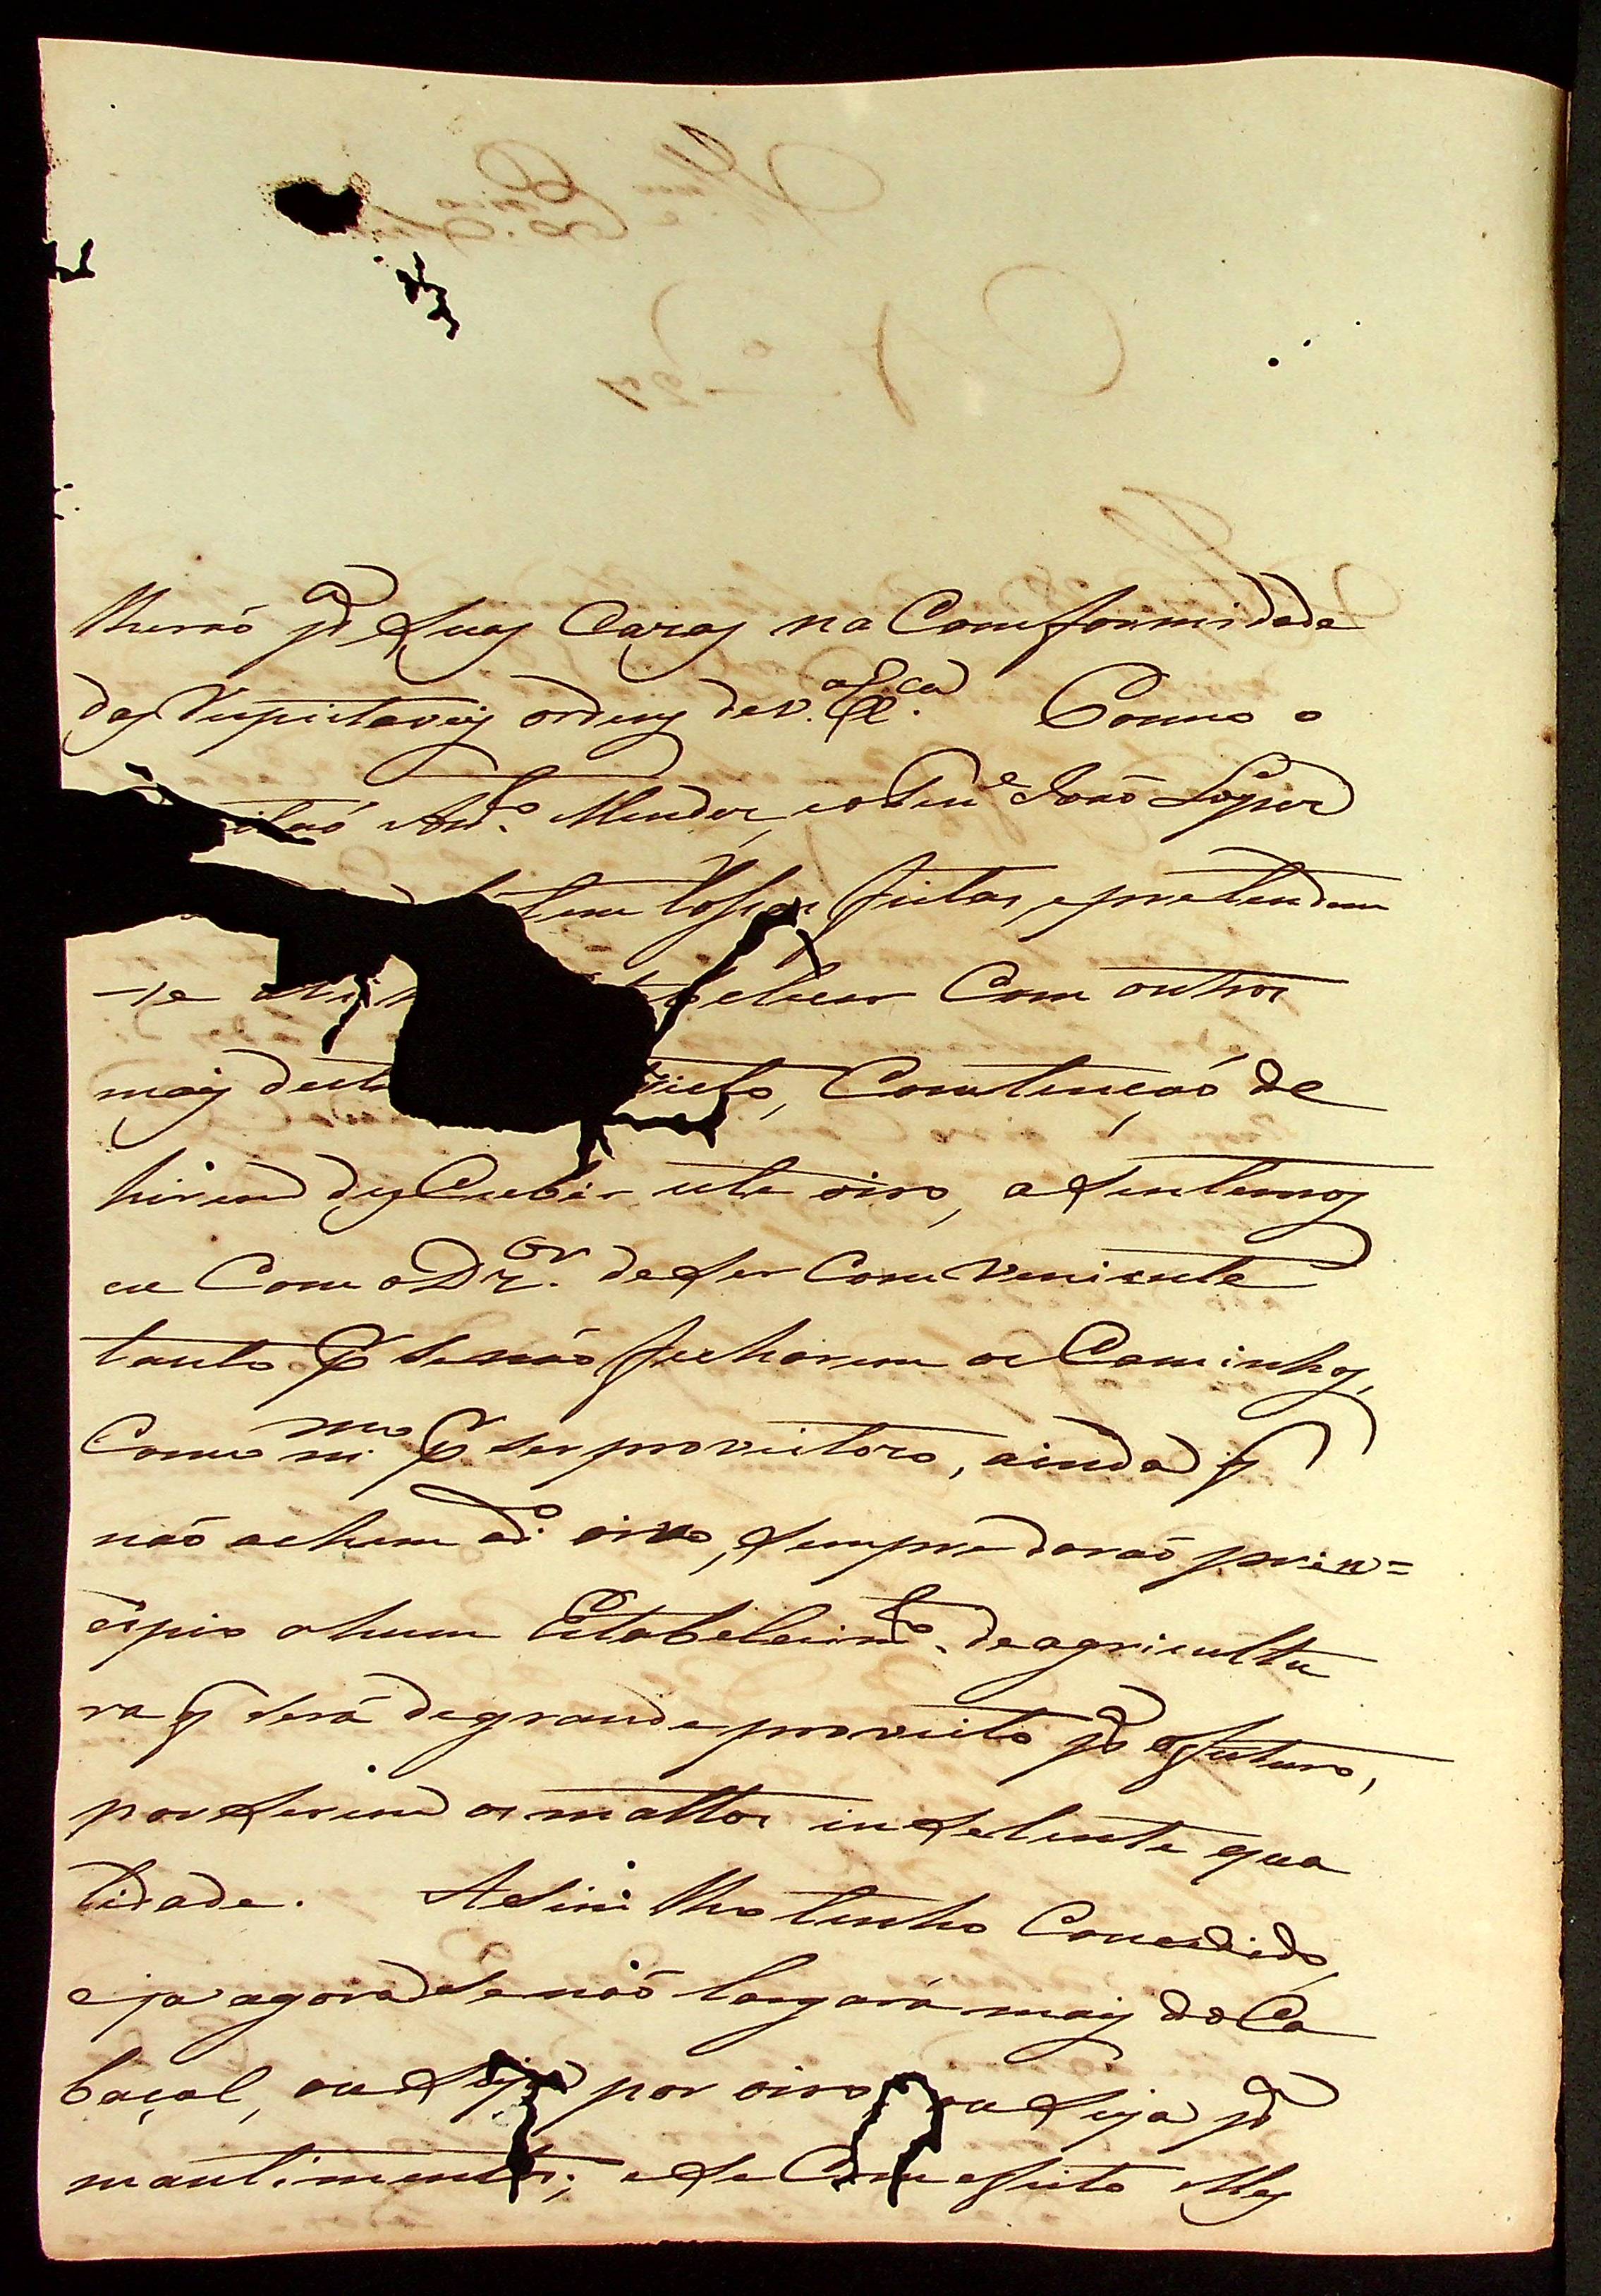 lheraõ pª Suas Cazas na Comformidade
das Respeitaveis ordens de V. Exca. Como o
itaõ Anto. Mendes, e o Tene. Joaõ Lopes
tem Rossas feitas, e pretendem
-se belecer Com outros
mais deste to, Comtençaõ de
hirem descubrir este oiro, asentemos
eu Com o Dr. Or. de ser Comveniente
tanto Pª se naõ fecharem os Caminhos,
Como mmo. Pª ser proveitozo, ainda q
naõ achem o do. oiro, sempre daraõ prin=
cipio a hum Estabelecimto. de agricultu
ra q será de grande proveito pª o futuro,
por serem os mattos inselente qua
lidade. Asim lho tenho Concedido,
e ja agora se naõ largará mais do Ca
baçal, ou seja por oiro, ou seja pª
mantimentos; e se Com efeito Mes